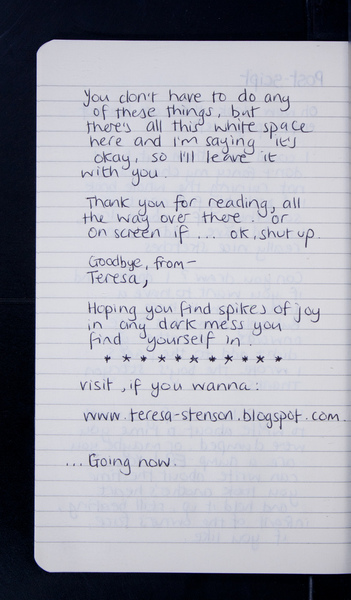 You don't have to do any
of these things, but
there's all this white space
here and I'm saying it's
okay, so I'll leave it
with you.
Thank you for reading, all
the way over there. or
on screen if ... ok, shut up.
Goodbye, from—
Teresa,
Hoping you find spikes of joy
in any dark mess you
find yourself in.
* * * * * * * * * * *
visit, if you wanna:
www.teresa-stenson.blogspot.com.
...Going now.